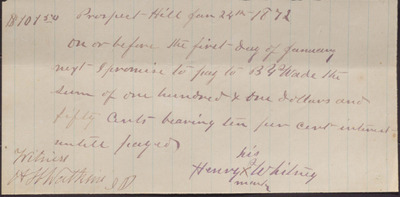 $101 50 Prospect Hill Jan 24th 1872
on or before the first day of January
next I promise to pay to B Y Wade the
sum of one hundred & one dollars and
fifty cents bearing ten per cent interest
untill payed
his
Witness Henry X Whitney
mark